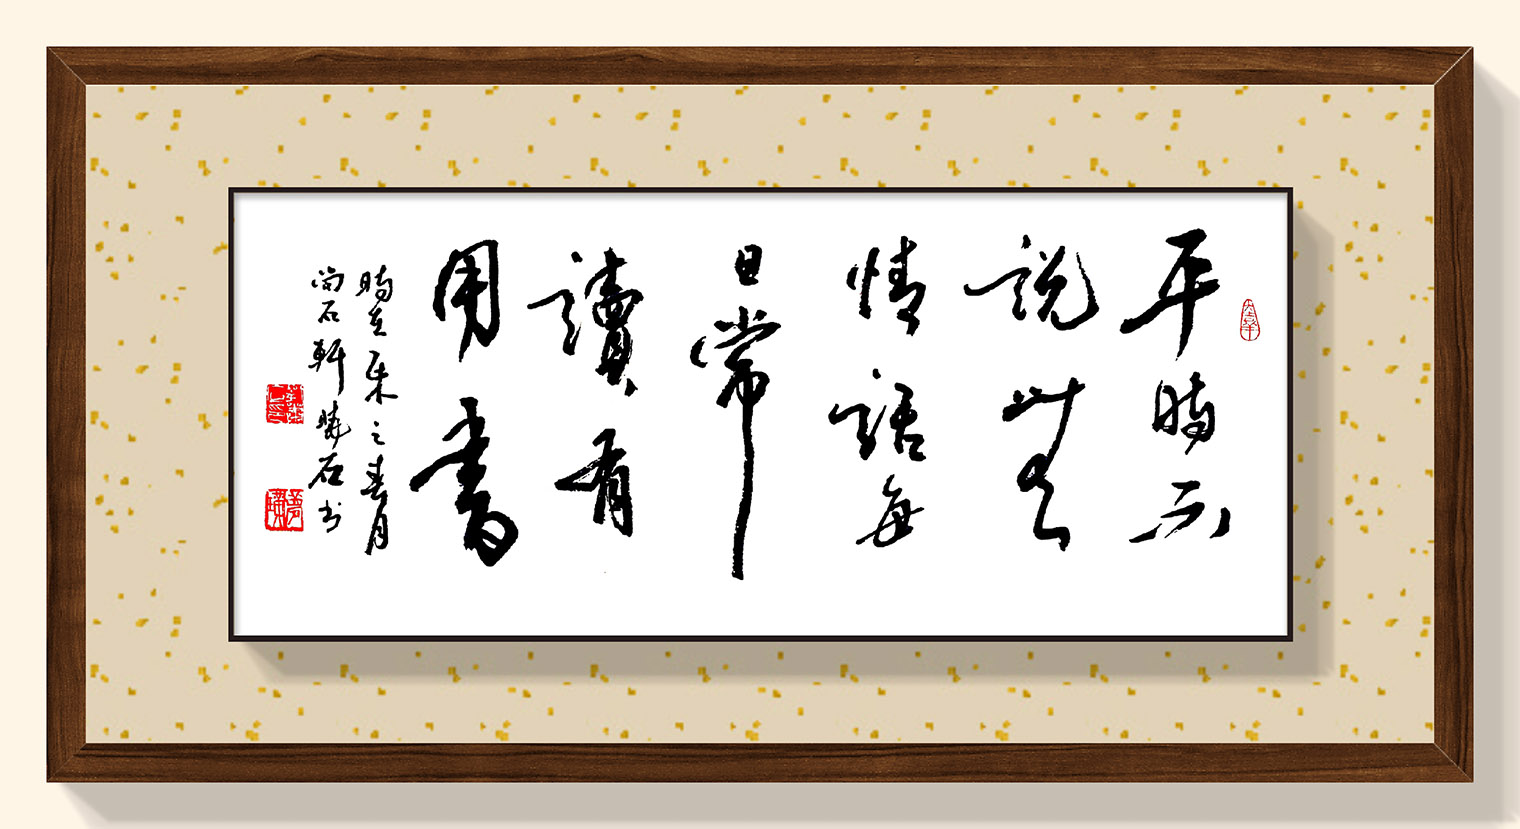 平時不
說無
情話每
日常
讀有
用書
時在
之春月
尚石軒曉石书